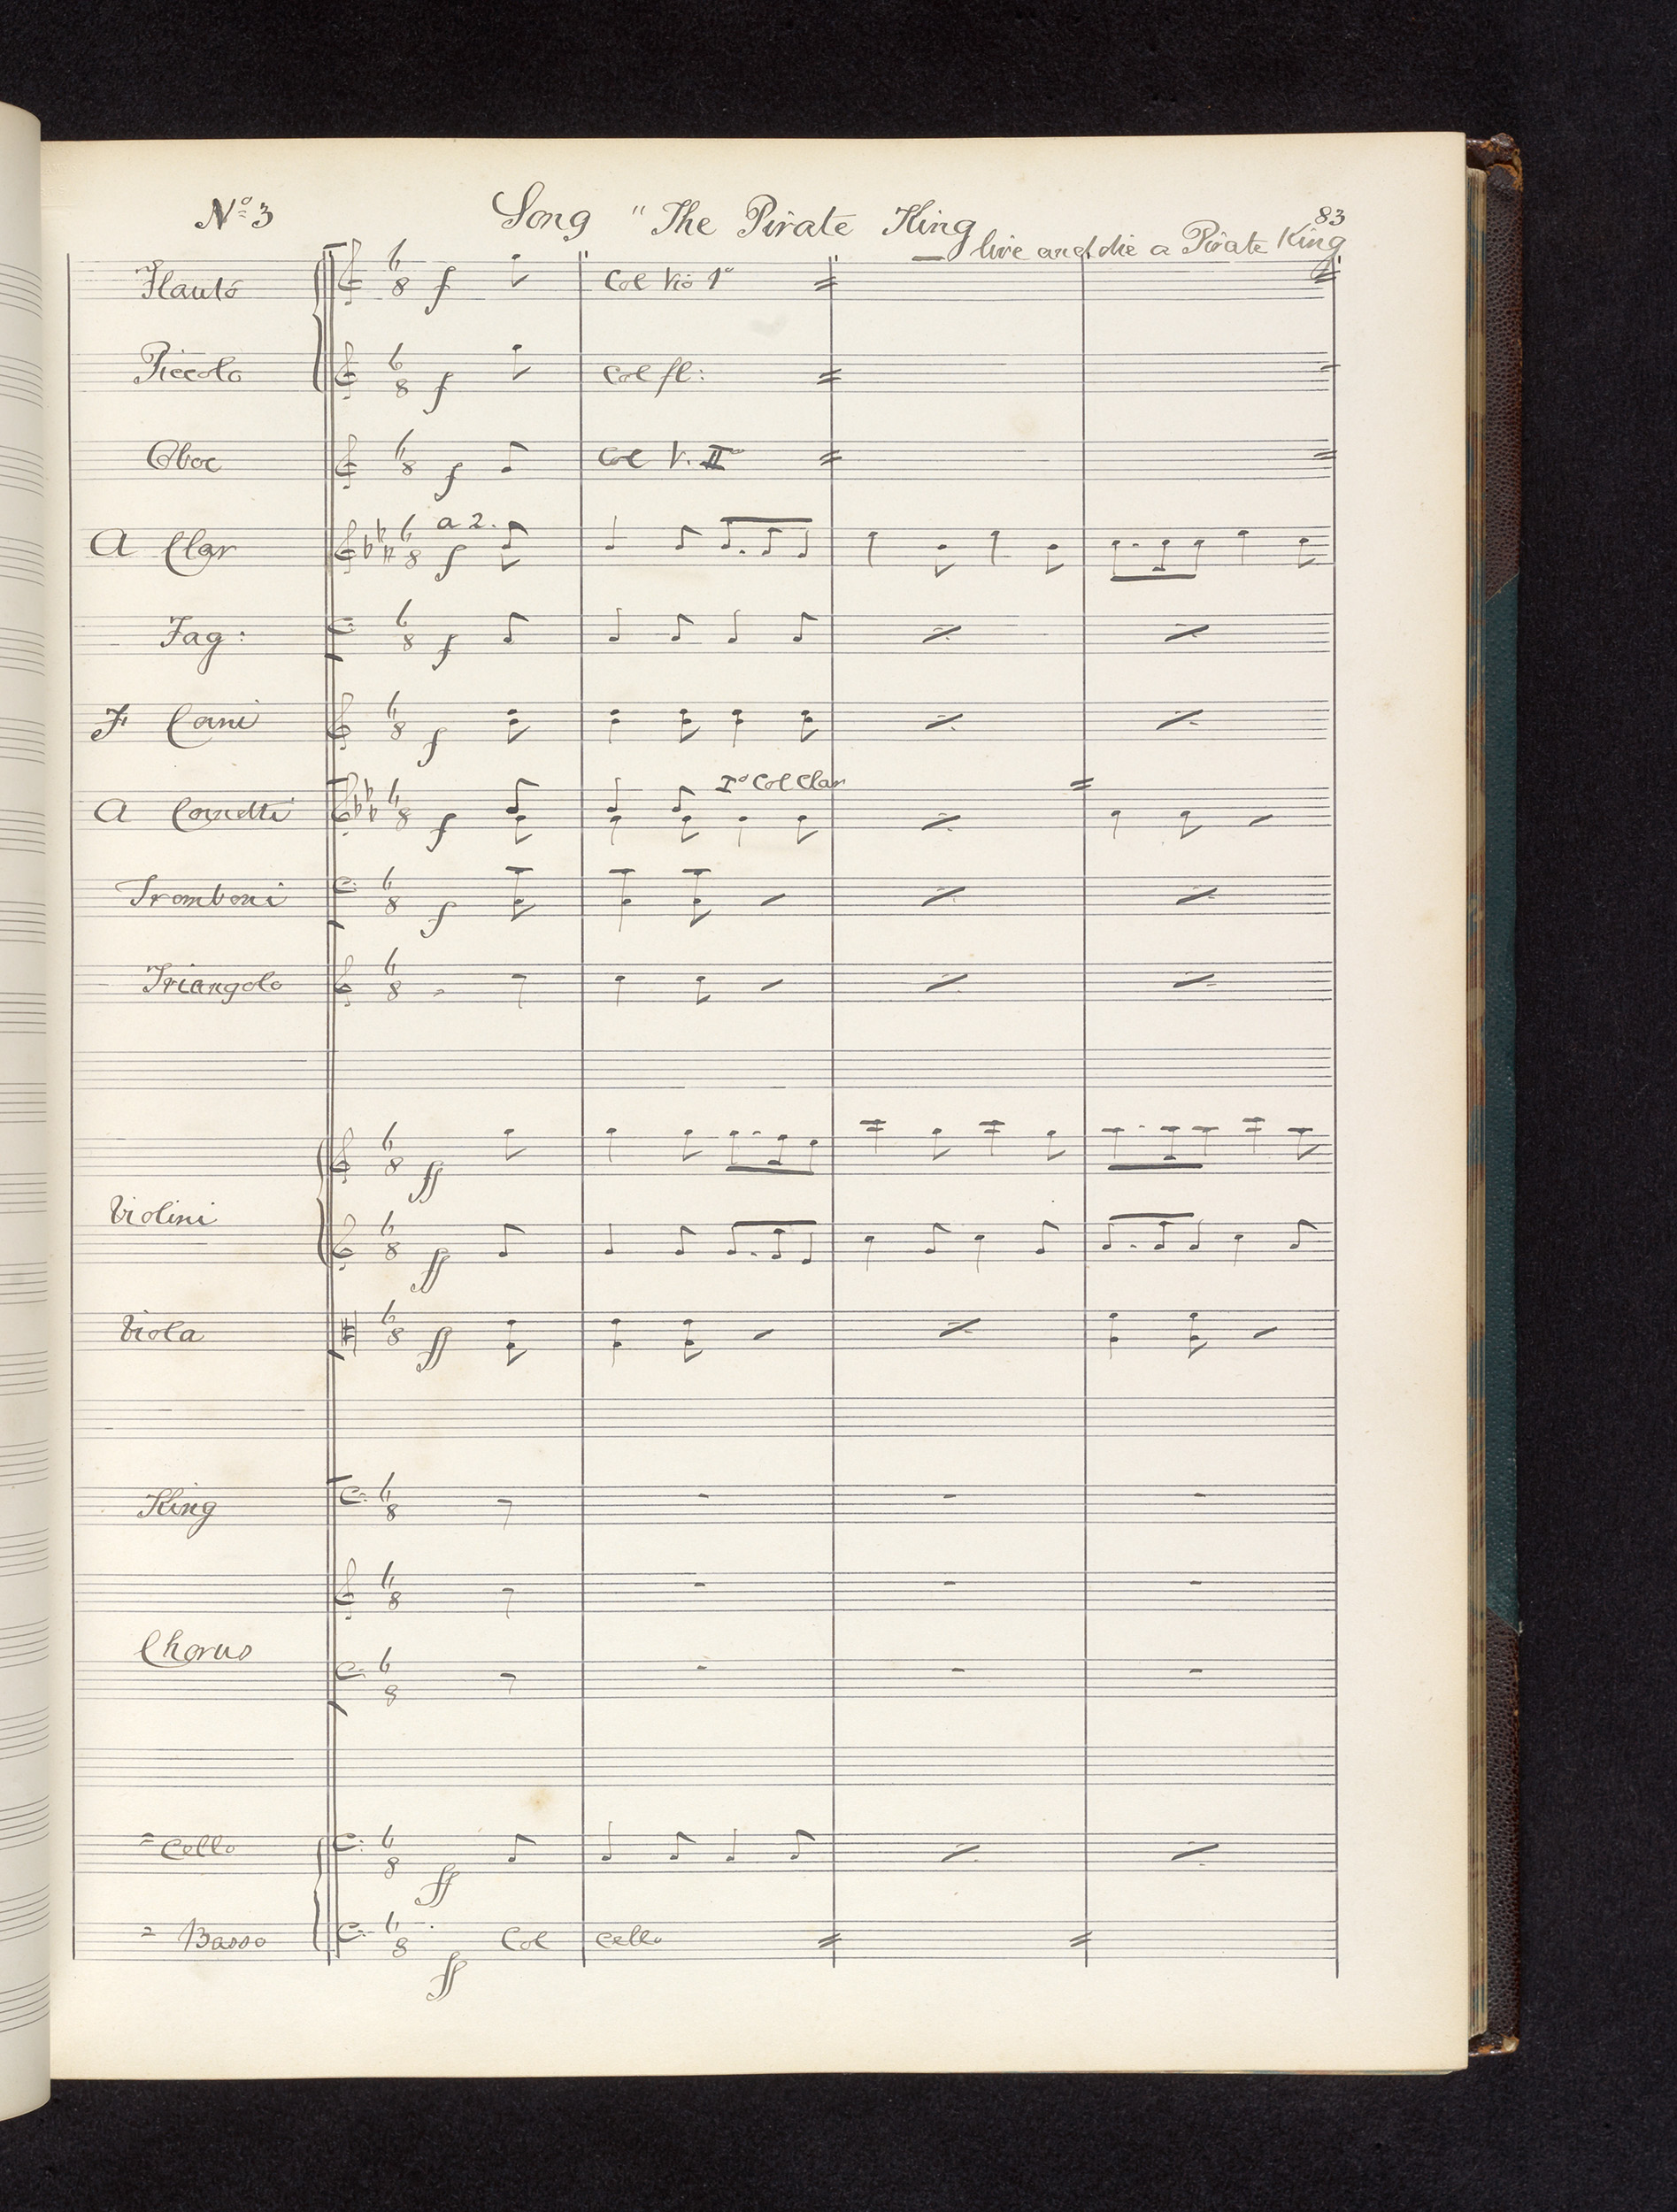 Nº 3 Song "The Pirate King 83
— live and die a Pirate King
Flauto 6/8 f Col Vio 1º
Piccolo 6/8 f Col fl:
Oboe 6/8 f Col V. IIº
A Clar 6/8 a 2. f
Fag: 6/8 f
F Corni 6/8 f
A Cornetti 6/8 f Iº Col Clar
Tromboni 6/8 f
Triangolo 6/8
6/8 ff
Violini
6/8 ff
Viola 6/8 ff
King 6/8
6/8
Chorus
6/8
Cello 6/8 ff
Basso 6/8 ff Col Cello